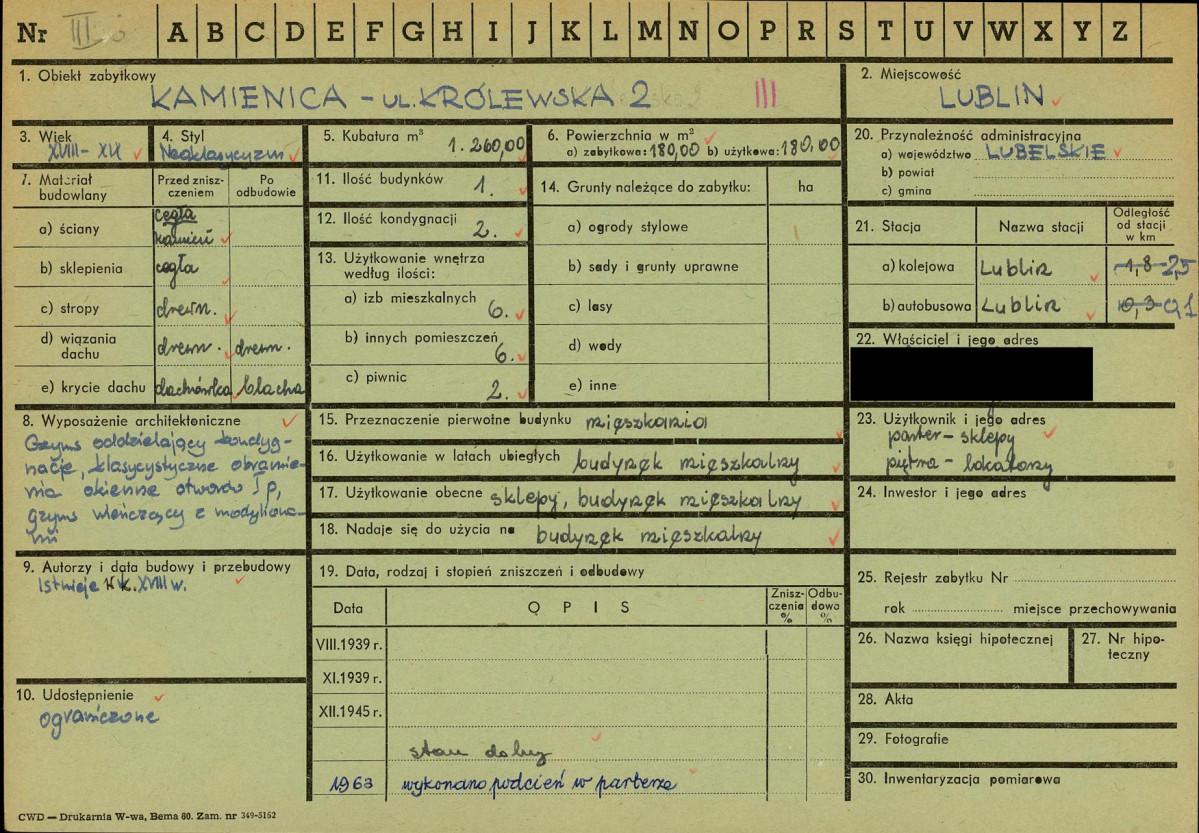 Nr III A B C D E F G H I J K L M N O P R S T U V W X Y Z
1. Obiekt zabytkowy
KAMIENICA – ul. KRÓLEWSKA 2 III
2. Miejscowość
LUBLIN
3. Wiek
XVIII – XIX
4. Styl
Neoklasycyzm
5. Kubatura m³
1.260,00
6. Powierzchnia w m²
a) zabytkowa: 180,00 b) użytkowa: 180,00
20. Przynależność administracyjna
a) województwo LUBELSKIE
b) powiat
c) gmina
7. Materiał budowlany
Przed zniszczeniem
Po odbudowie
a) ściany
cegła
kamień
b) sklepienia cegła
c) stropy drewn.
d) wiązania dachu drewn. drewn.
e) krycie dachu dachówka blacha
11. Ilość budynków 1.
12. Ilość kondygnacji 2.
13. Użytkowanie wnętrza
według ilości:
a) izb mieszkalnych
6.
b) innych pomieszczeń
6.
c) piwnic
2.
14. Grunty należące do zabytku: ha
a) ogrody stylowe
b) sady i grunty uprawne
c) lasy
d) wody
e) inne
21. Stacja
Nazwa stacji
Odległość
od stacji
w km
a) kolejowa Lublin 1,8 2,5
b) autobusowa Lublin 0,3 0,1
22. Właściciel i jego adres
8. Wyposażenie architektoniczne
Gzyms oddzielający kondyg-
nacje, klasycystyczne obramie-
nia okienne otworów Ip,
gzyms wieńczący z modyliona-
mi
15. Przeznaczenie pierwotne budynku mieszkania
16. Użytkowanie w latach ubiegłych budynek mieszkalny
17. Użytkowanie obecne sklepy, budynek mieszkalny
18. Nadaje się do użycia na budynek mieszkalny
23. Użytkownik i jego adres
parter – sklepy
piętra – lokatorzy
24. Inwestor i jego adres
9. Autorzy i data budowy i przebudowy
Istnieje k. XVIII w.
10. Udostępnienie
ograniczone
19. Data, rodzaj i stopień zniszczeń i odbudowy
Data
OPIS
Znisz-
czenia
%
Odbu-
dowa
%
VIII.1939 r.
XI.1939 r.
XII.1945 r.
stan dobry
1963 wykonano podcień w parterze
25. Rejestr zabytku Nr
rok miejsce przechowywania
26. Nazwa księgi hipotecznej
27. Nr hipo-
teczny
28. Akta
29. Fotografie
30. Inwentaryzacja pomiarowa
CWD — Drukarnia W-wa, Bema 60. Zam. nr 349-5162